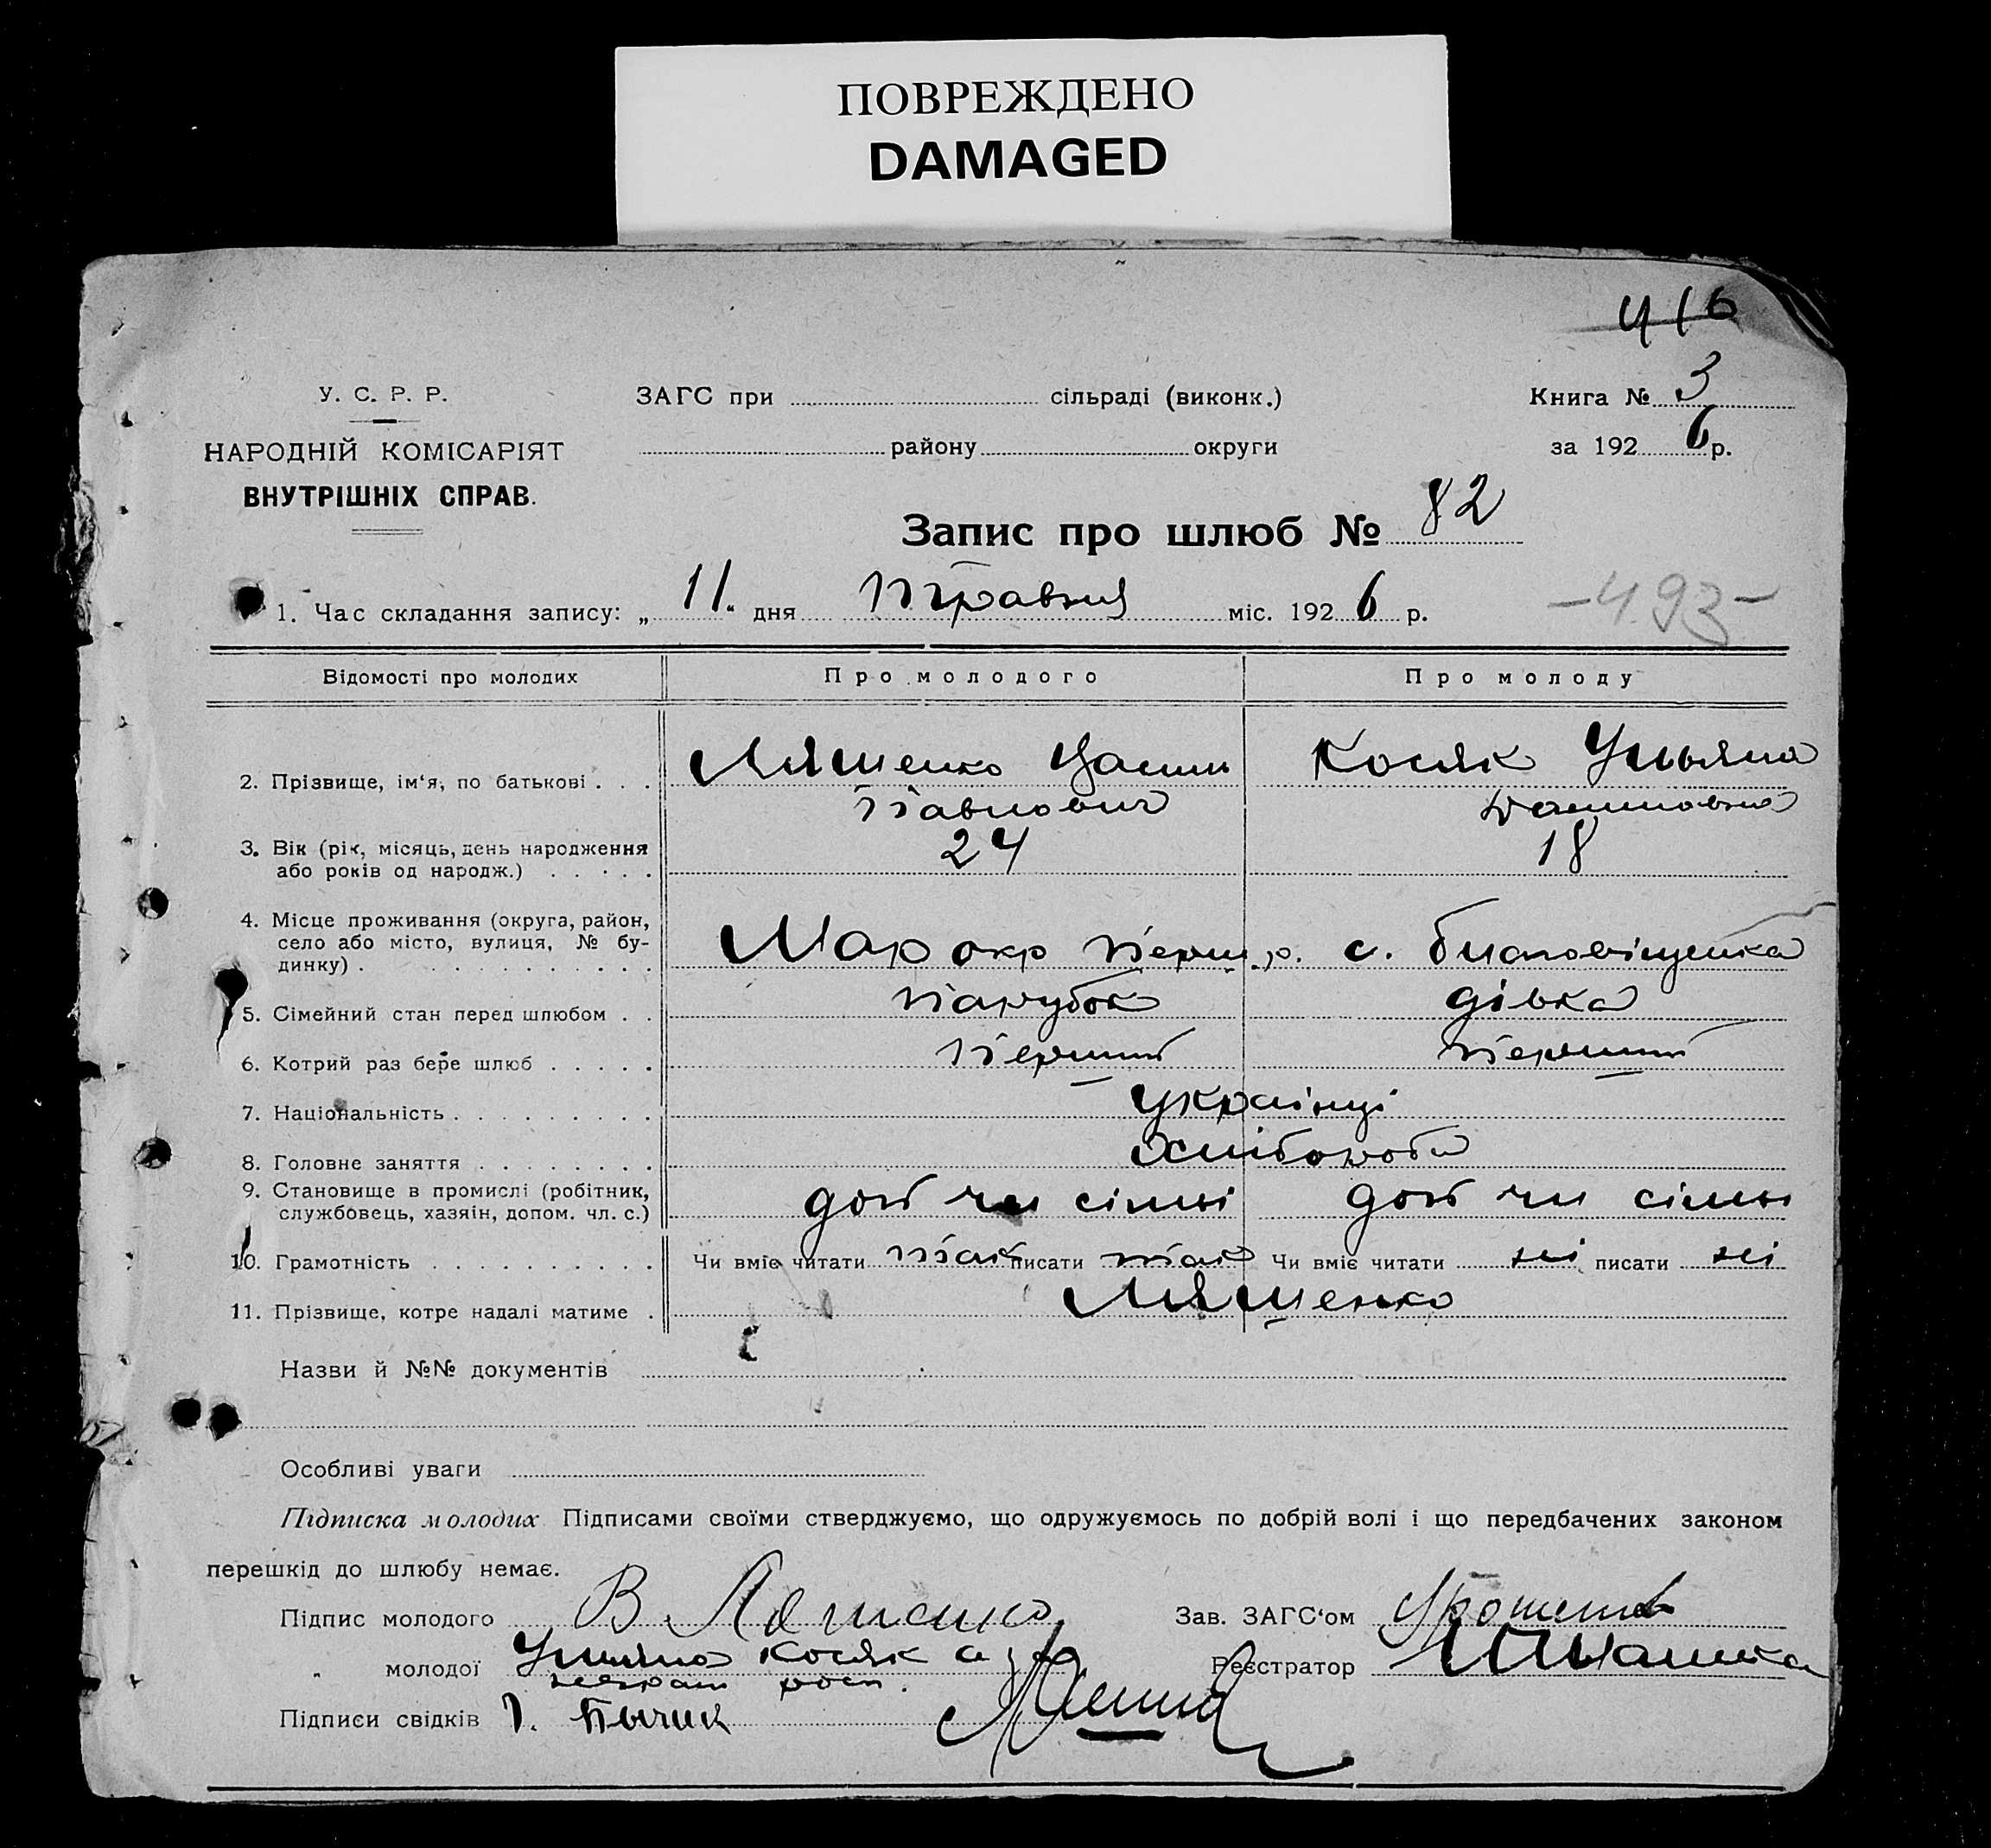 ПОВРЕЖДЕНО
DAMAGED
416
У. С. Р. Р.
ЗАГС при сільраді (виконк.)
Книга № 3
НАРОДНІЙ КОМІСАРІЯТ
району округи
за 192 6 р.
ВНУТРІШНІХ СПРАВ.
Запис про шлюб № 82
1. Час складання запису: „ 11 " дня Травня міс. 192 6 р.
-493-
Відомості про молодих
Про молодого
Про молоду
2. Прізвище, ім'я, по батькові . . .
Ляшенко
Павлович
Косяк Ульяна
3. Вік (рік, місяць, день народження
або років од народж.) . . . . .
24
18
4. Місце проживання (округа, район,
село або місто, вулиця, № бу-
динку) . . . . . . . . . . .
Мар окр Перш. р. с. Благовіщенка
5. Сімейний стан перед шлюбом . .
парубок
дівка
6. Котрий раз бере шлюб . . . . .
Перший
Перший
7. Національність . . . . . . . . .
Українці
8. Головне заняття . . . . . . . .
Хлібороби
9. Становище в промислі (робітник,
службовець, хазяін, допом. чл. с.)
доп чл сімьі
доп чл сімьі
10. Грамотність . . . . . . . . . .
Чи вміє читати так писати так
Чи вміє читати ні писати ні
11. Прізвище, котре надалі матиме .
Ляшенко
Назви й №№ документів
Особливі уваги
Підписка молодих Підписами своїми стверджуємо, що одружуємось по добрій волі і що передбачених законом
перешкід до шлюбу немає.
Підпис молодого В Ляшенко
Зав. ЗАГС'ом
„ молодої Уляна Косяк а за
неграм росп.
Реєстратор
Підписи свідків